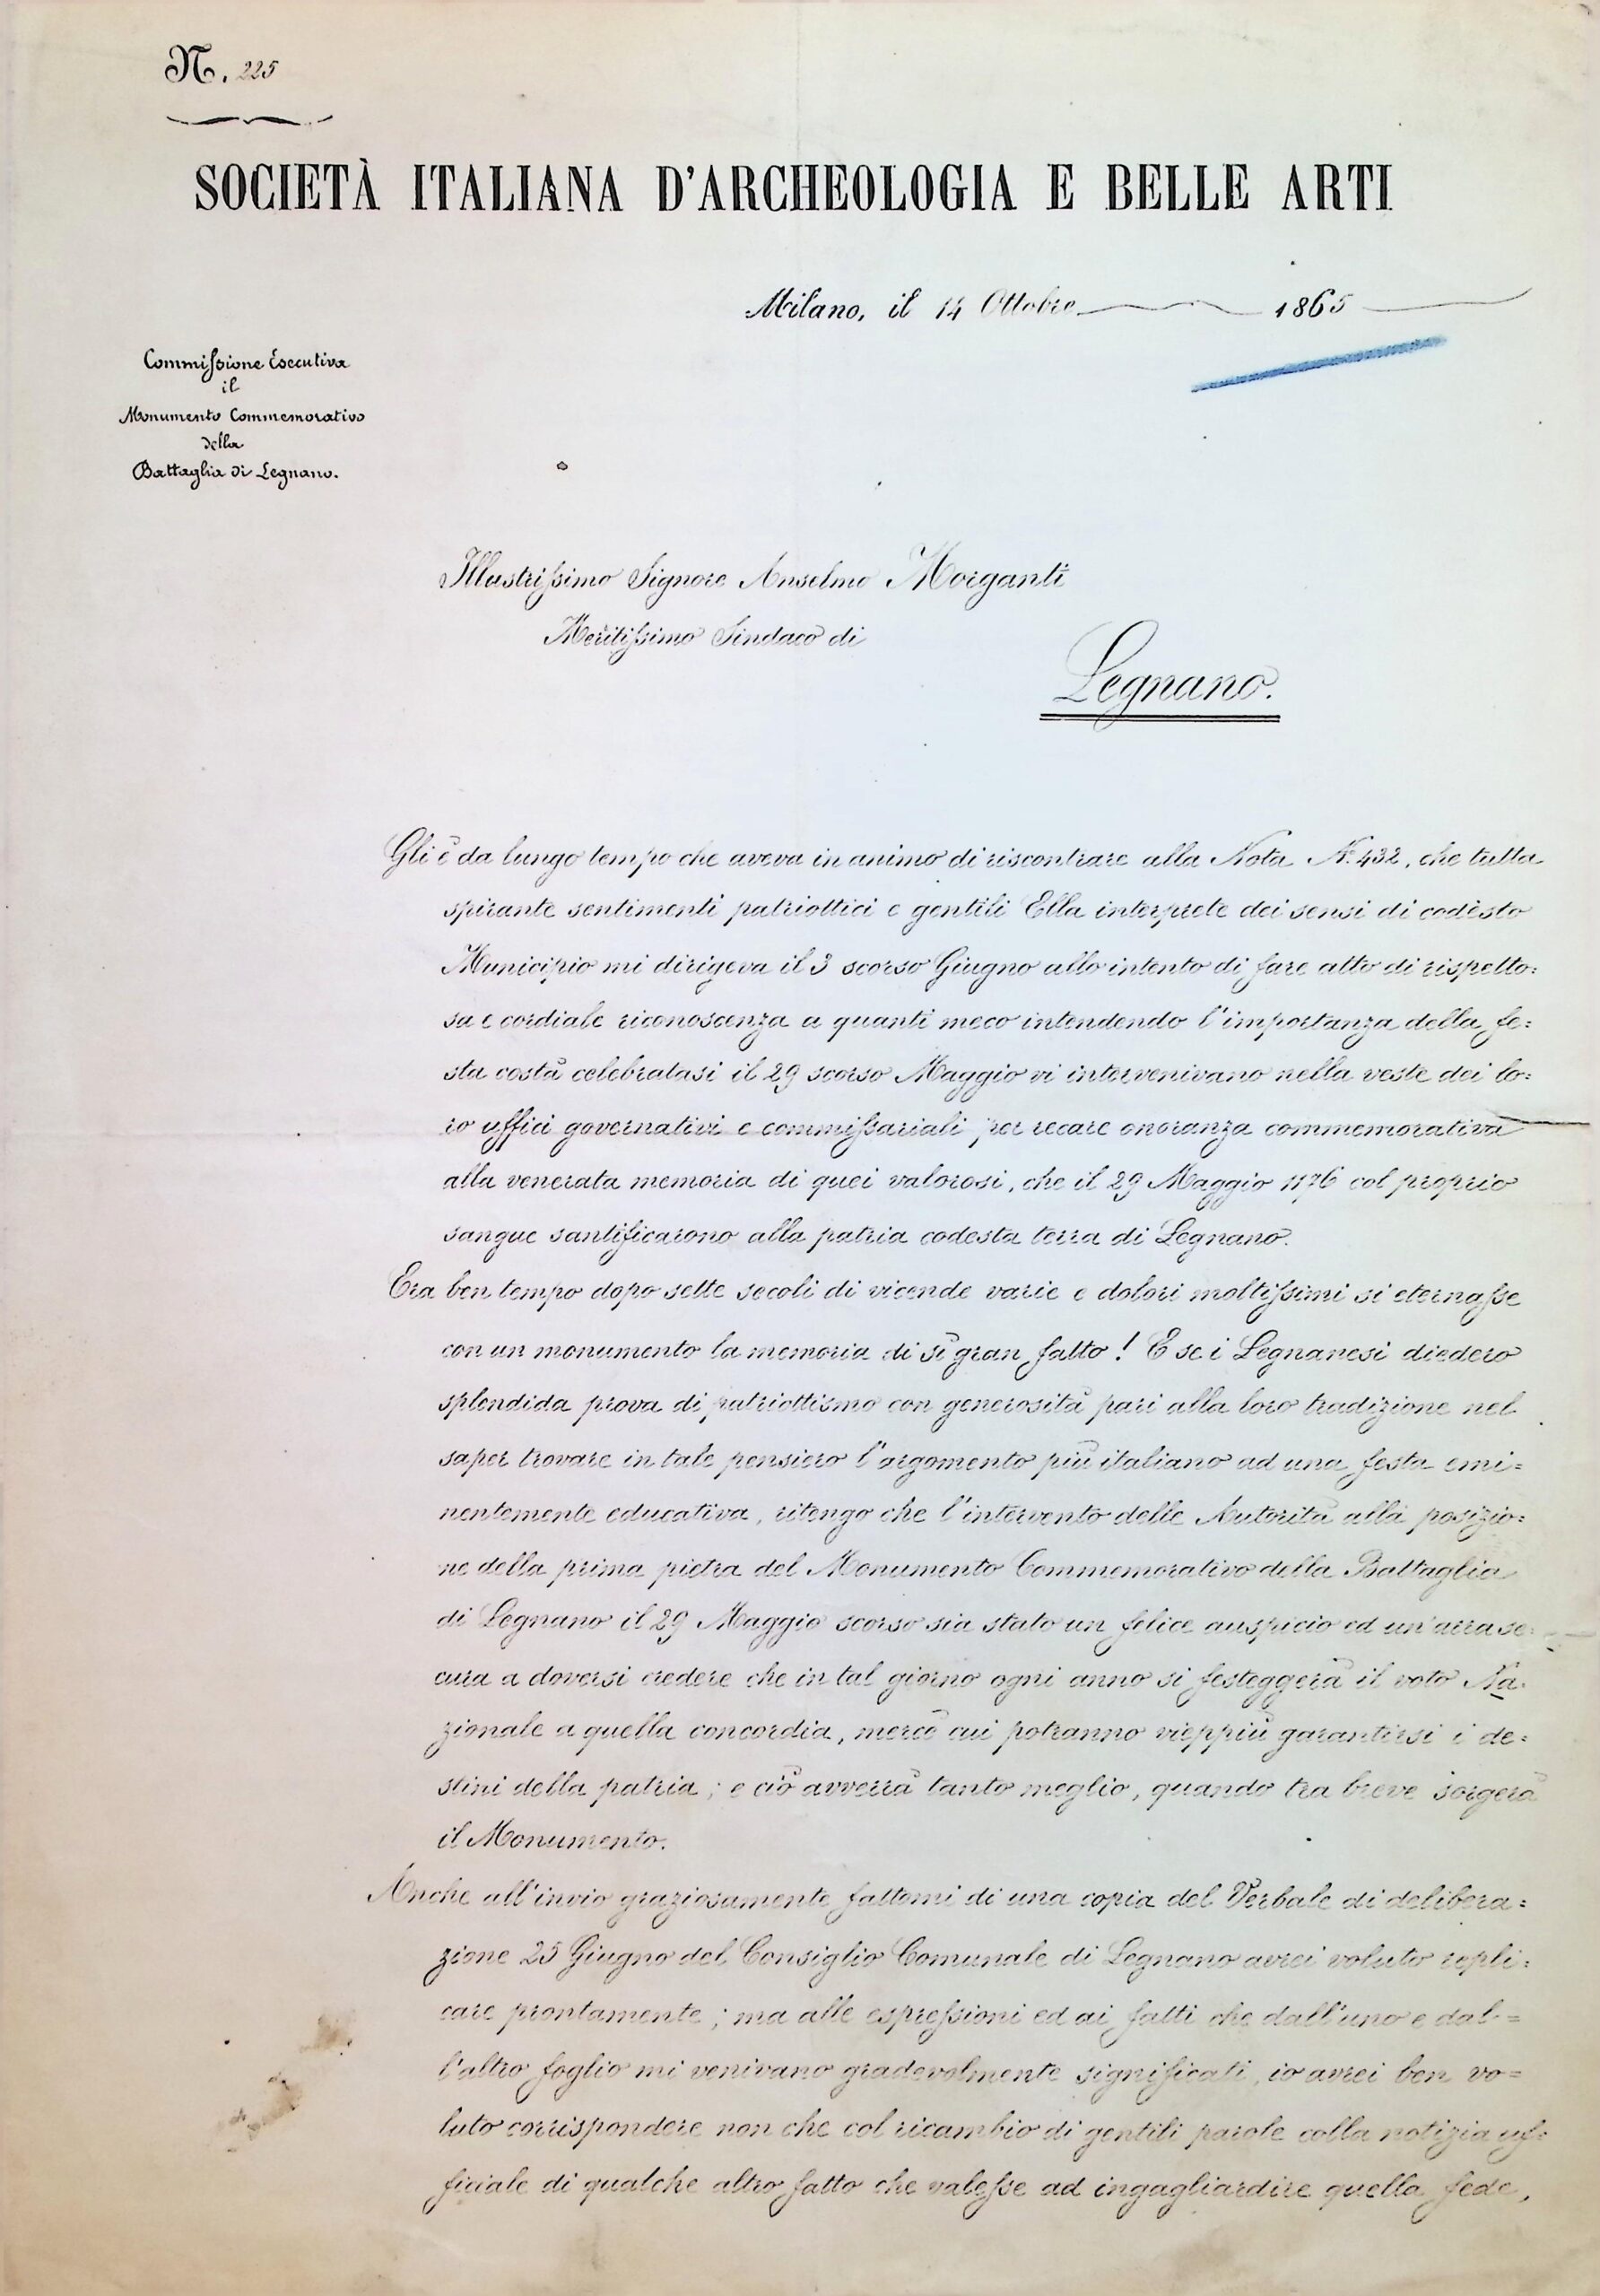 N. 225
SOCIETÀ ITALIANA D'ARCHEOLOGIA E BELLE ARTI
Milano, il 14 Ottobre 1865
Commissione Esecutiva
il
Monumento Commemorativo
della
Battaglia di Legnano.
Illustrissimo Signore Anselmo Morganti
Meritissimo Sindaco di
Legnano.
Gli è da lungo tempo che aveva in animo di riscontrare alla Nota N.° 432, che tutta
spirante sentimenti patriottici e gentili Ella interprete dei sensi di codesto
Municipio mi dirigeva il 3 scorso Giugno allo intento di fare atto di rispetto=
sa e cordiale riconoscenza a quanti meco intendendo l'importanza della fe=
sta costà celebratasi il 29 scorso Maggio vi intervenivano nella veste dei lo=
ro uffici governativi e commissariali per recare onoranza commemorativa
alla venerata memoria di quei valorosi, che il 29 Maggio 1176 col proprio
sangue santificarono alla patria codesta terra di Legnano.
Era ben tempo dopo sette secoli di vicende varie e dolori moltissimi si eternasse
con un monumento la memoria di sì gran fatto! E se i Legnanesi diedero
splendida prova di patriottismo con generosità pari alla loro tradizione nel
saper trovare in tale pensiero l'argomento più italiano ad una festa emi=
nentemente educativa, ritengo che l'intervento delle Autorità alla posizio=
ne della prima pietra del Monumento Commemorativo della Battaglia
di Legnano il 29 Maggio scorso sia stato un felice auspicio ed un'arra se=
cura a doversi credere che in tal giorno ogni anno si festeggerà il voto Na=
zionale a quella concordia, mercè cui potranno vieppiù garantirsi i de=
stini della patria; e ciò avverrà tanto meglio, quando tra breve sorgerà
il Monumento.
Anche all'invio graziosamente fattomi di una copia del Verbale di delibera=
zione 25 Giugno del Consiglio Comunale di Legnano avrei voluto repli=
care prontamente; ma alle espressioni ed ai fatti che dall'uno e dal=
l'altro foglio mi venivano gradevolmente significati, io avrei ben vo=
luto corrispondere non che col ricambio di gentili parole colla notizia uf=
ficiale di qualche altro fatto che valesse ad ingagliardire quella fede,